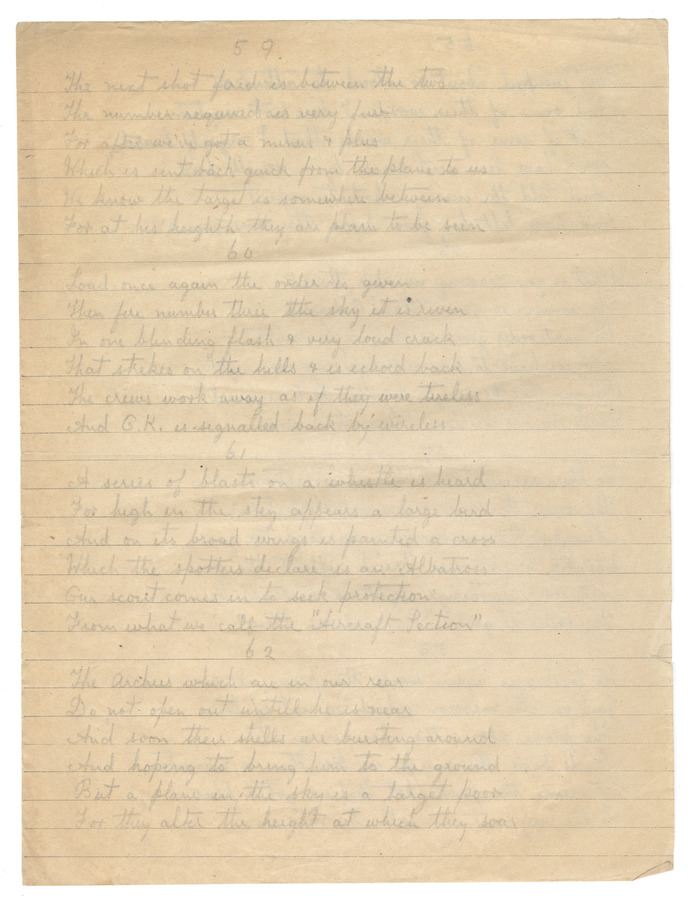 59.
The next shot fired is between the two
The number required is very few
For after we've got a minus & plus
Which is sent back quick from the plane to us
We know the target is somewhere between
For at his heighth they are plain to be seen
60
Load once again the order is given
Then fire number three & the sky it is riven
In one blinding flash & very loud crack
That strikes on the hills & is echoed back
The crews work away as if they were tireless
And O.K. is signalled back by wireless
61
A series of blasts on a whistle is heard
For high in the sky appears a large bird
And on its broad wings is painted a cross
Which the spotters declare is an Albatross
Our scout comes in to seek protection
From what we call the "Aircraft Section"
62
The Archies which are in our rear
Do not open out untill he is near
And soon their shells are bursting around
And hoping to bring him to the ground
But a plane in the sky is a target poor
For they alter the height at which they soar